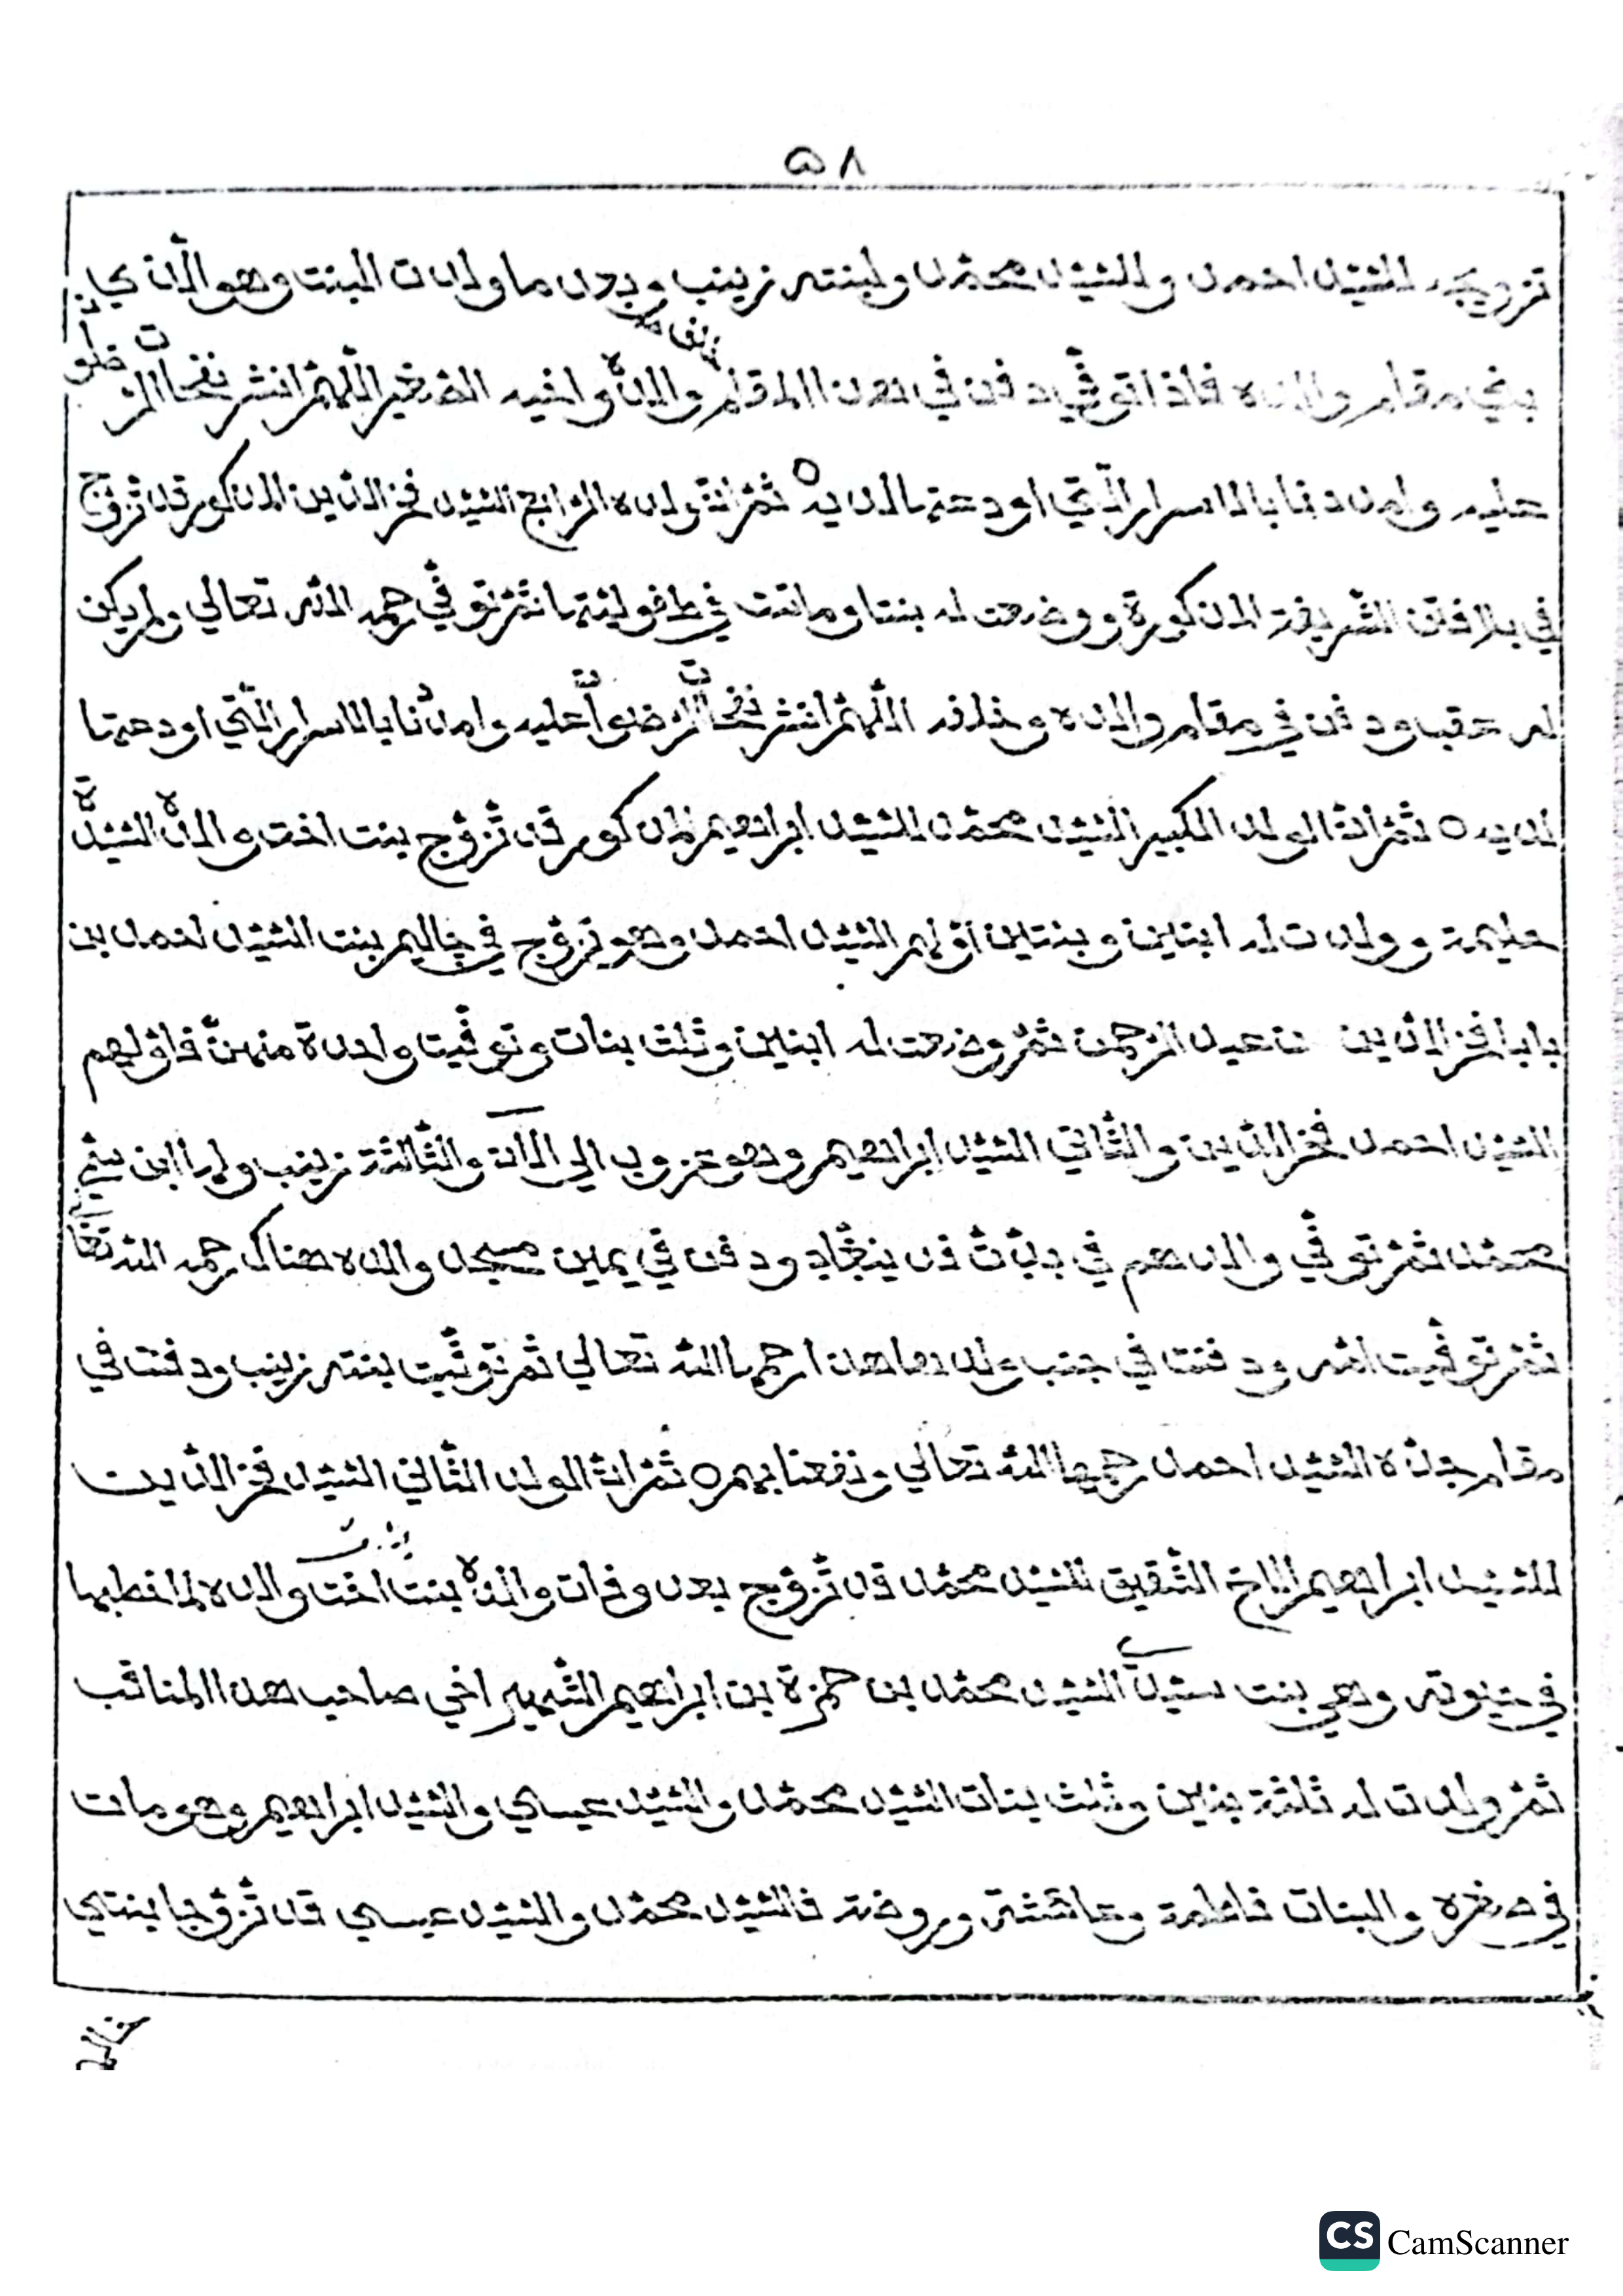 ٥٨
تزويجه السّيّد احمد والسّيّد محمّد ولبنته زينب وبعد ما ولدت البنت وهو الّذي
بني مقام والده فاذا توفّي دفن في هذا المقام والدهُ واخيه الصّغير اللّهمّ انشر نفحات الرّضوا
عليه وامددنا بالاسرار الّتي اودعتها لديه ٥ ثمّ انّ ولده الرّابع السّيّد فخر الدّين المذكور قد تزوّج
في بلافتن الشّريفة المذكورة ووضعت له بنتا وماتت في طفوليّتها ثمّ توفّي رحمه اللّه تعالي ولم يكن
له عقب ودفن في مقام والده وخلفه اللّهمّ انشر نفحات الرّضوان عليه وامددنا بالاسرار الّتي اودعتها
لديه ٥ ثمّ انّ الولد الكبير السّيّد محمّد للسّيّد ابراهيم المذكور قد تزوّج بنت اخت والده السّيّدة
حليمة وولدت له ابنين وبنتين اوّلهم السّيّد احمد وهو تزوّج في چاليم بنت السّيّد احمد بن
بابا فخر الدّين بن عبد الرّحمن ثمّ وضعت له ابنين وثلث بنات وتوفّيت واحدة منهنّ فاوّلهم
السّيّد احمد فخر الدّين والثّاني السّيّد ابراهيم وهو عزوب الي الآن والثّالثة زينب ولها ابن سمّي
محمّد ثمّ توفّي والدهم في ودفن في يمين مسجد والده هناك رحمه اللّه تعالي
ثمّ توفّيت امّه ودفنت في جنب ولدها هذا رحمها اللّه تعالي ثمّ توفّيت بنته زينب ودفنت في
مقام جدّه السّيّد احمد رحمها اللّه تعالي ونفعنا بهم ٥ ثمّ انّ الولد الثّاني السّيّد فخر الدّين
للسّيّد ابراهيم الاخ الشّقيق للسّيّد محمّد قد تزوّج بعد وفات والده بنت اخت والده لما خطبها
في حيوته وهي بنت السّيّد محمّد بن حمزة بن ابراهيم الشّهير اخي صاحب هذا المناقب
ثمّ ولدت له ثلثة بنين وثلث بنات السّيّد محمّد والسّيّد عيسي والسّيّد ابراهيم وهو مات
في صغره والبنات فاطمة وعائشة وروضة فالسّيّد محمّد والسّيّد عيسي قد تزوّجا بنتي
CS CamScanner